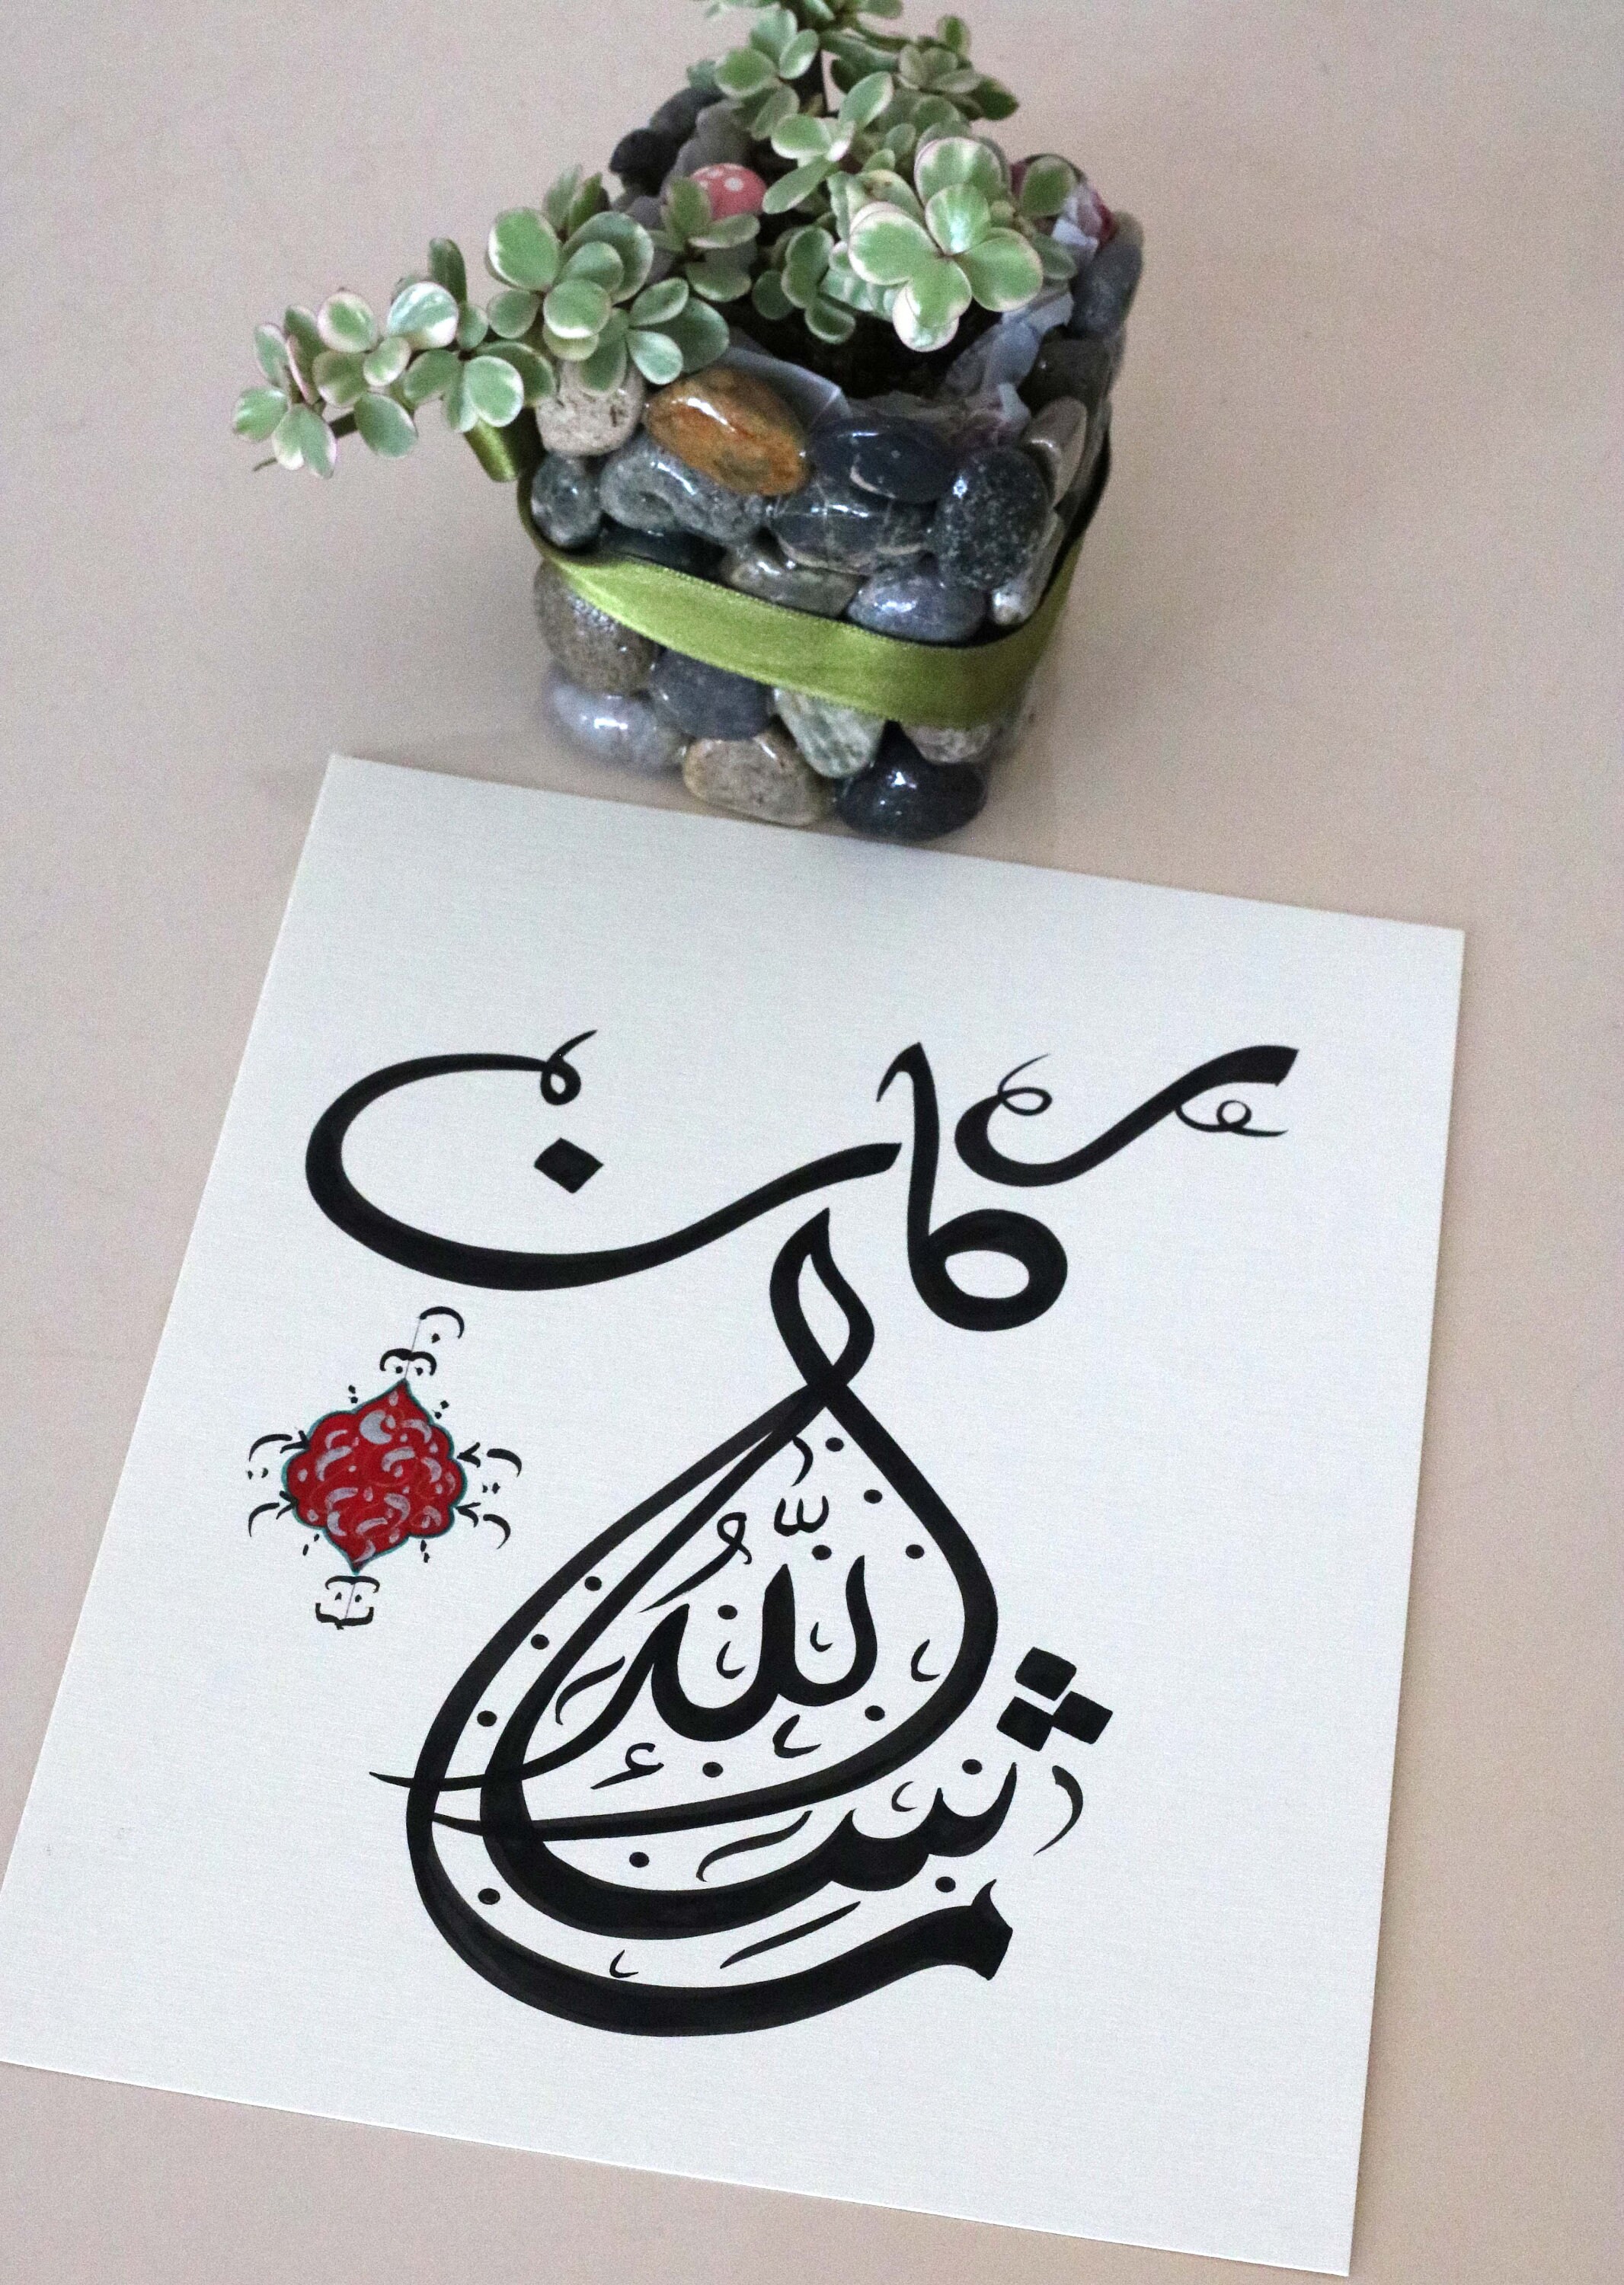 ما شاء الله
كان